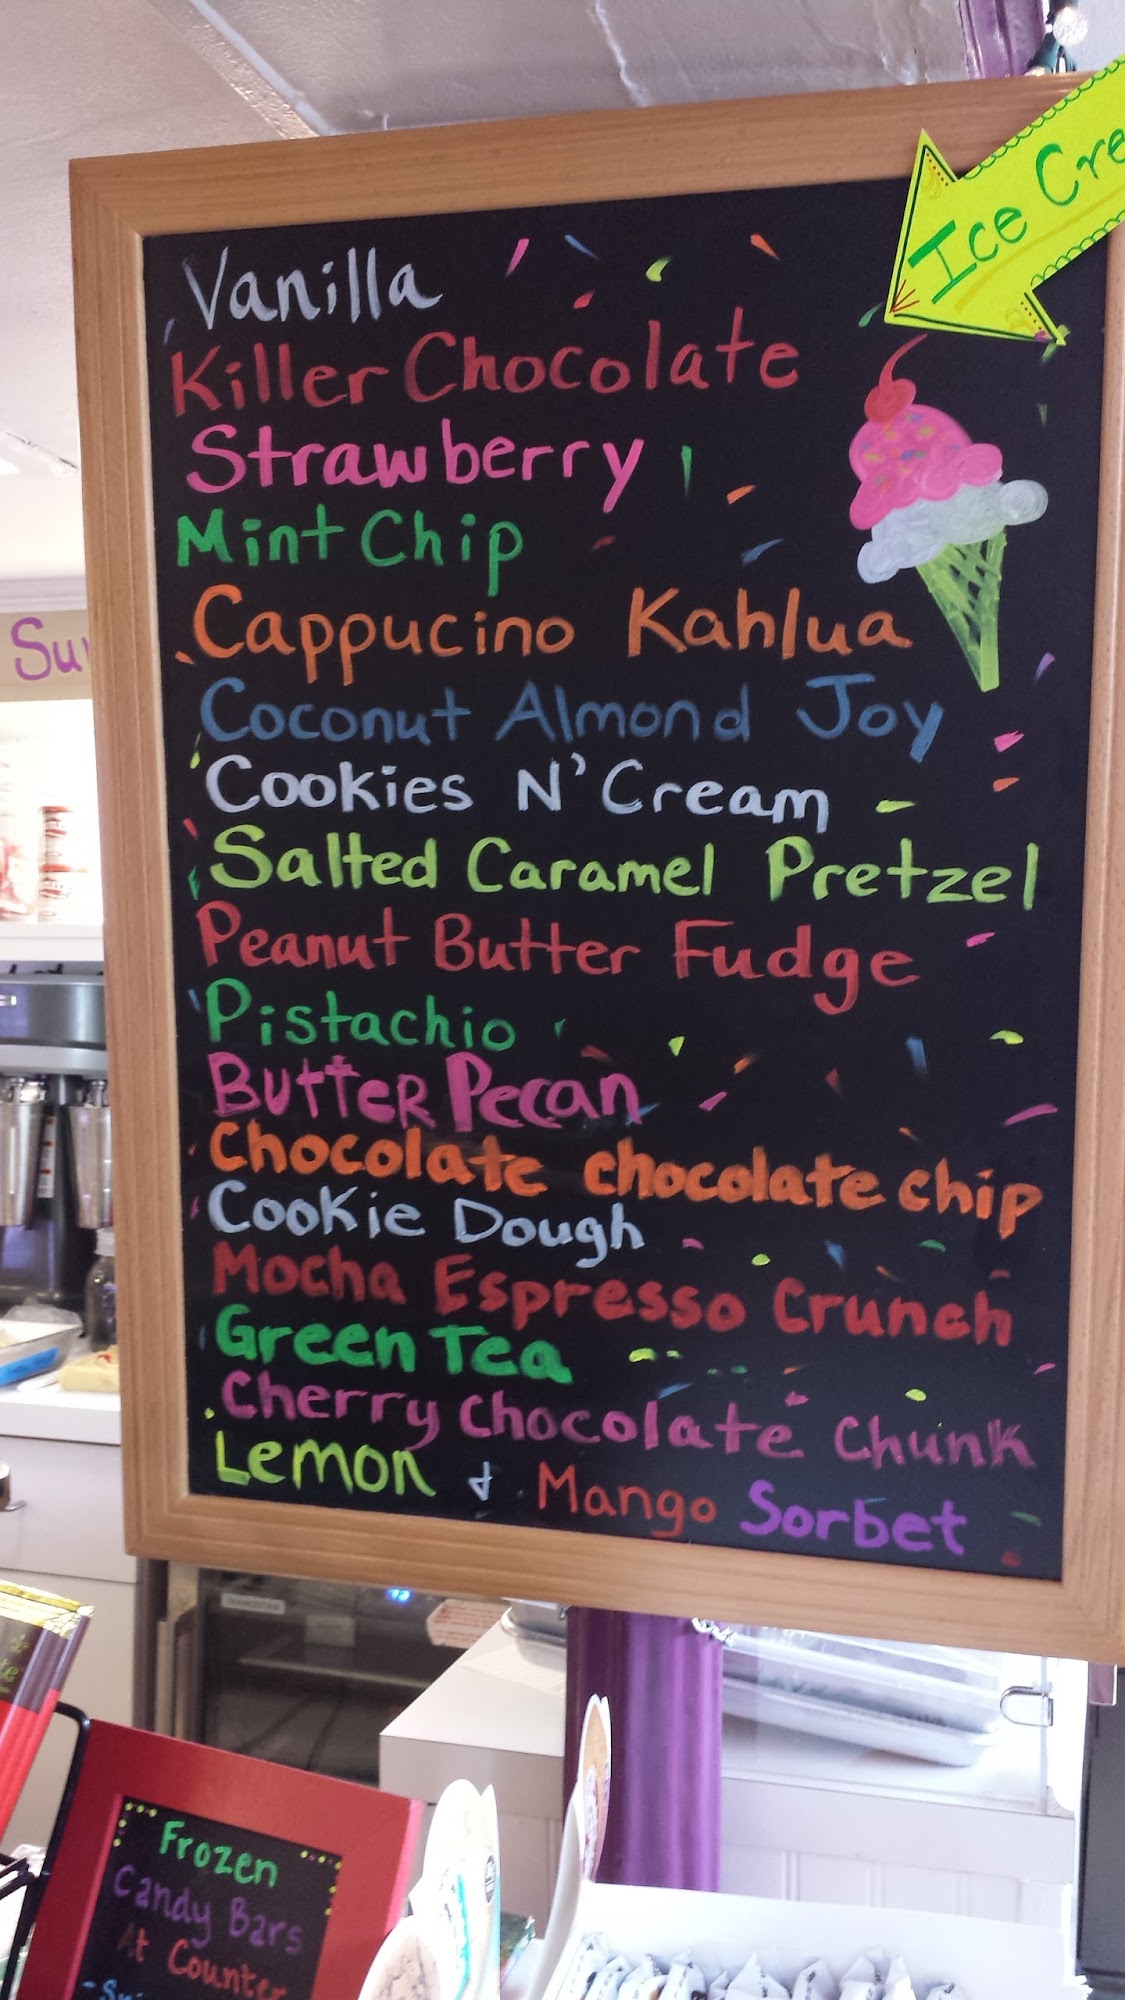 Ice Cre
Vanilla
Killer Chocolate
Strawberry
Mint Chip
Cappucino Kahlua
Coconut Almond Joy
Cookies N' Cream
Salted Caramel Pretzel
Peanut Butter Fudge
Pistachio
Butter Pecan
Chocolate chocolate chip
Cookie Dough
Mocha Espresso Crunch
Green Tea
Cherry Chocolate Chunk
Lemon & Mango Sorbet
Su
Frozen
Candy Bars
At Counter